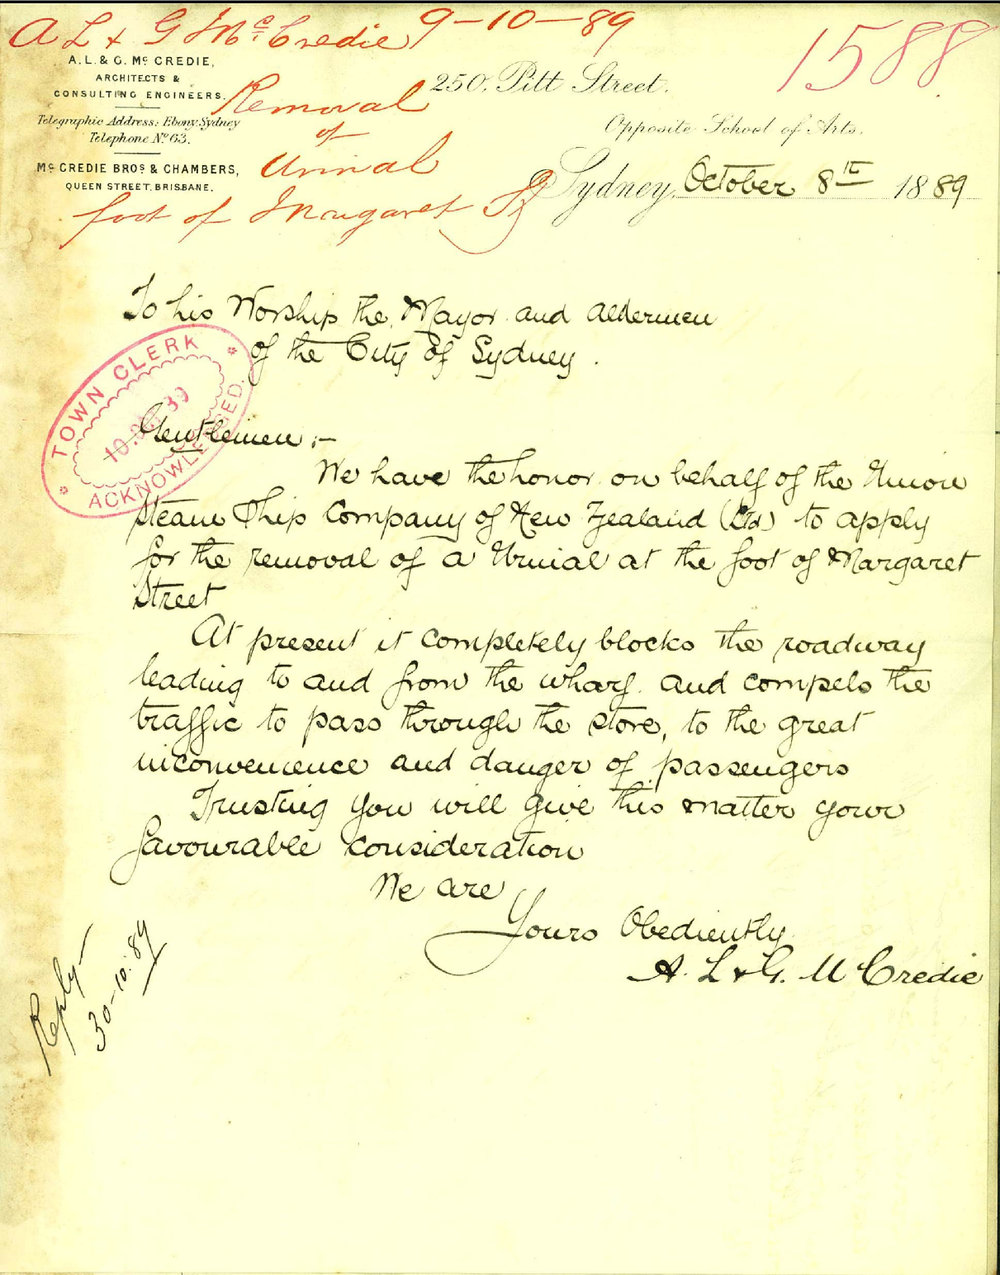 A L & G McCredie 9-10-89
1588
A. L. & G. Mc CREDIE,
ARCHITECTS &
CONSULTING ENGINEERS.
Telegraphic Address: Ebony, Sydney
Telephone No 63.
Mc CREDIE BROS & CHAMBERS,
QUEEN STREET, BRISBANE.
Removal
of
Urinal
foot of Margaret St
250, Pitt Street.
Opposite School of Arts.
Sydney, October 8th 1889
To his Worship the Mayor and Aldermen
of the City of Sydney.
TOWN CLERK
ACKNOWLEDGED.
Gentlemen:-
We have the honor on behalf of the Union
Steam Ship Company of New Zealand (Ltd) to apply
for the removal of a Urinal at the foot of Margaret
Street
At present it completely blocks the roadway
leading to and from the wharf and compels the
traffic to pass through the store, to the great
inconvenience and danger of passengers
Trusting you will give this matter your
favourable consideration
We are
Yours Obediently
A. L & G. McCredie
Reply
30-10.89